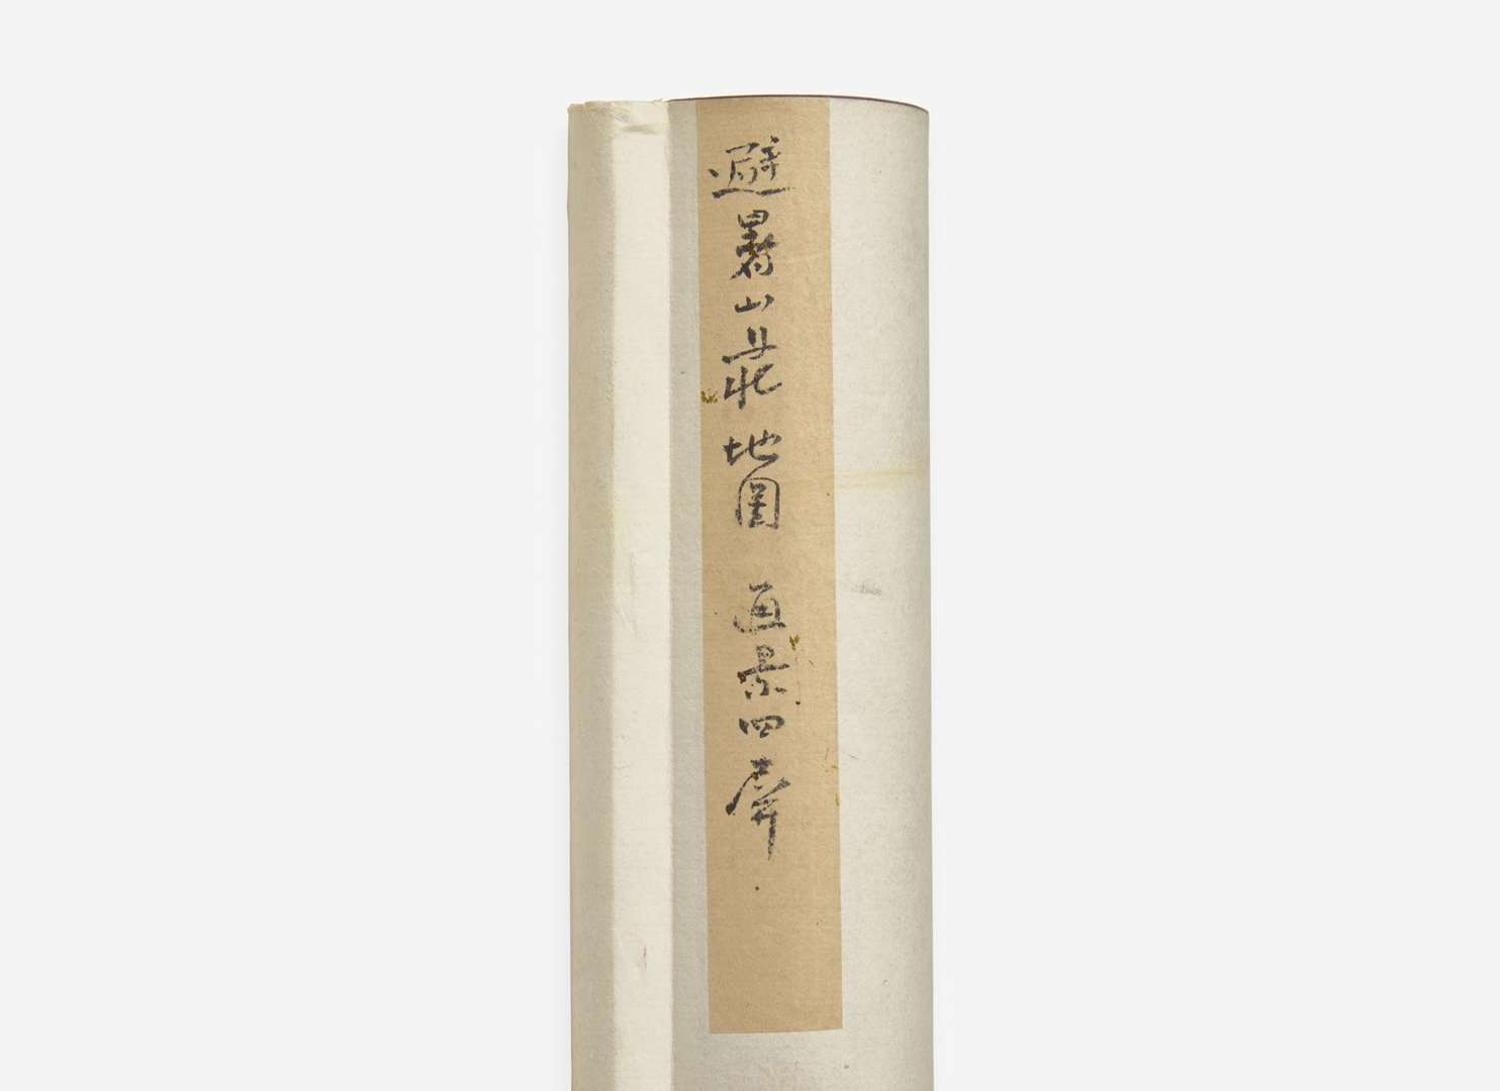 避暑山莊地圖 画景四屏